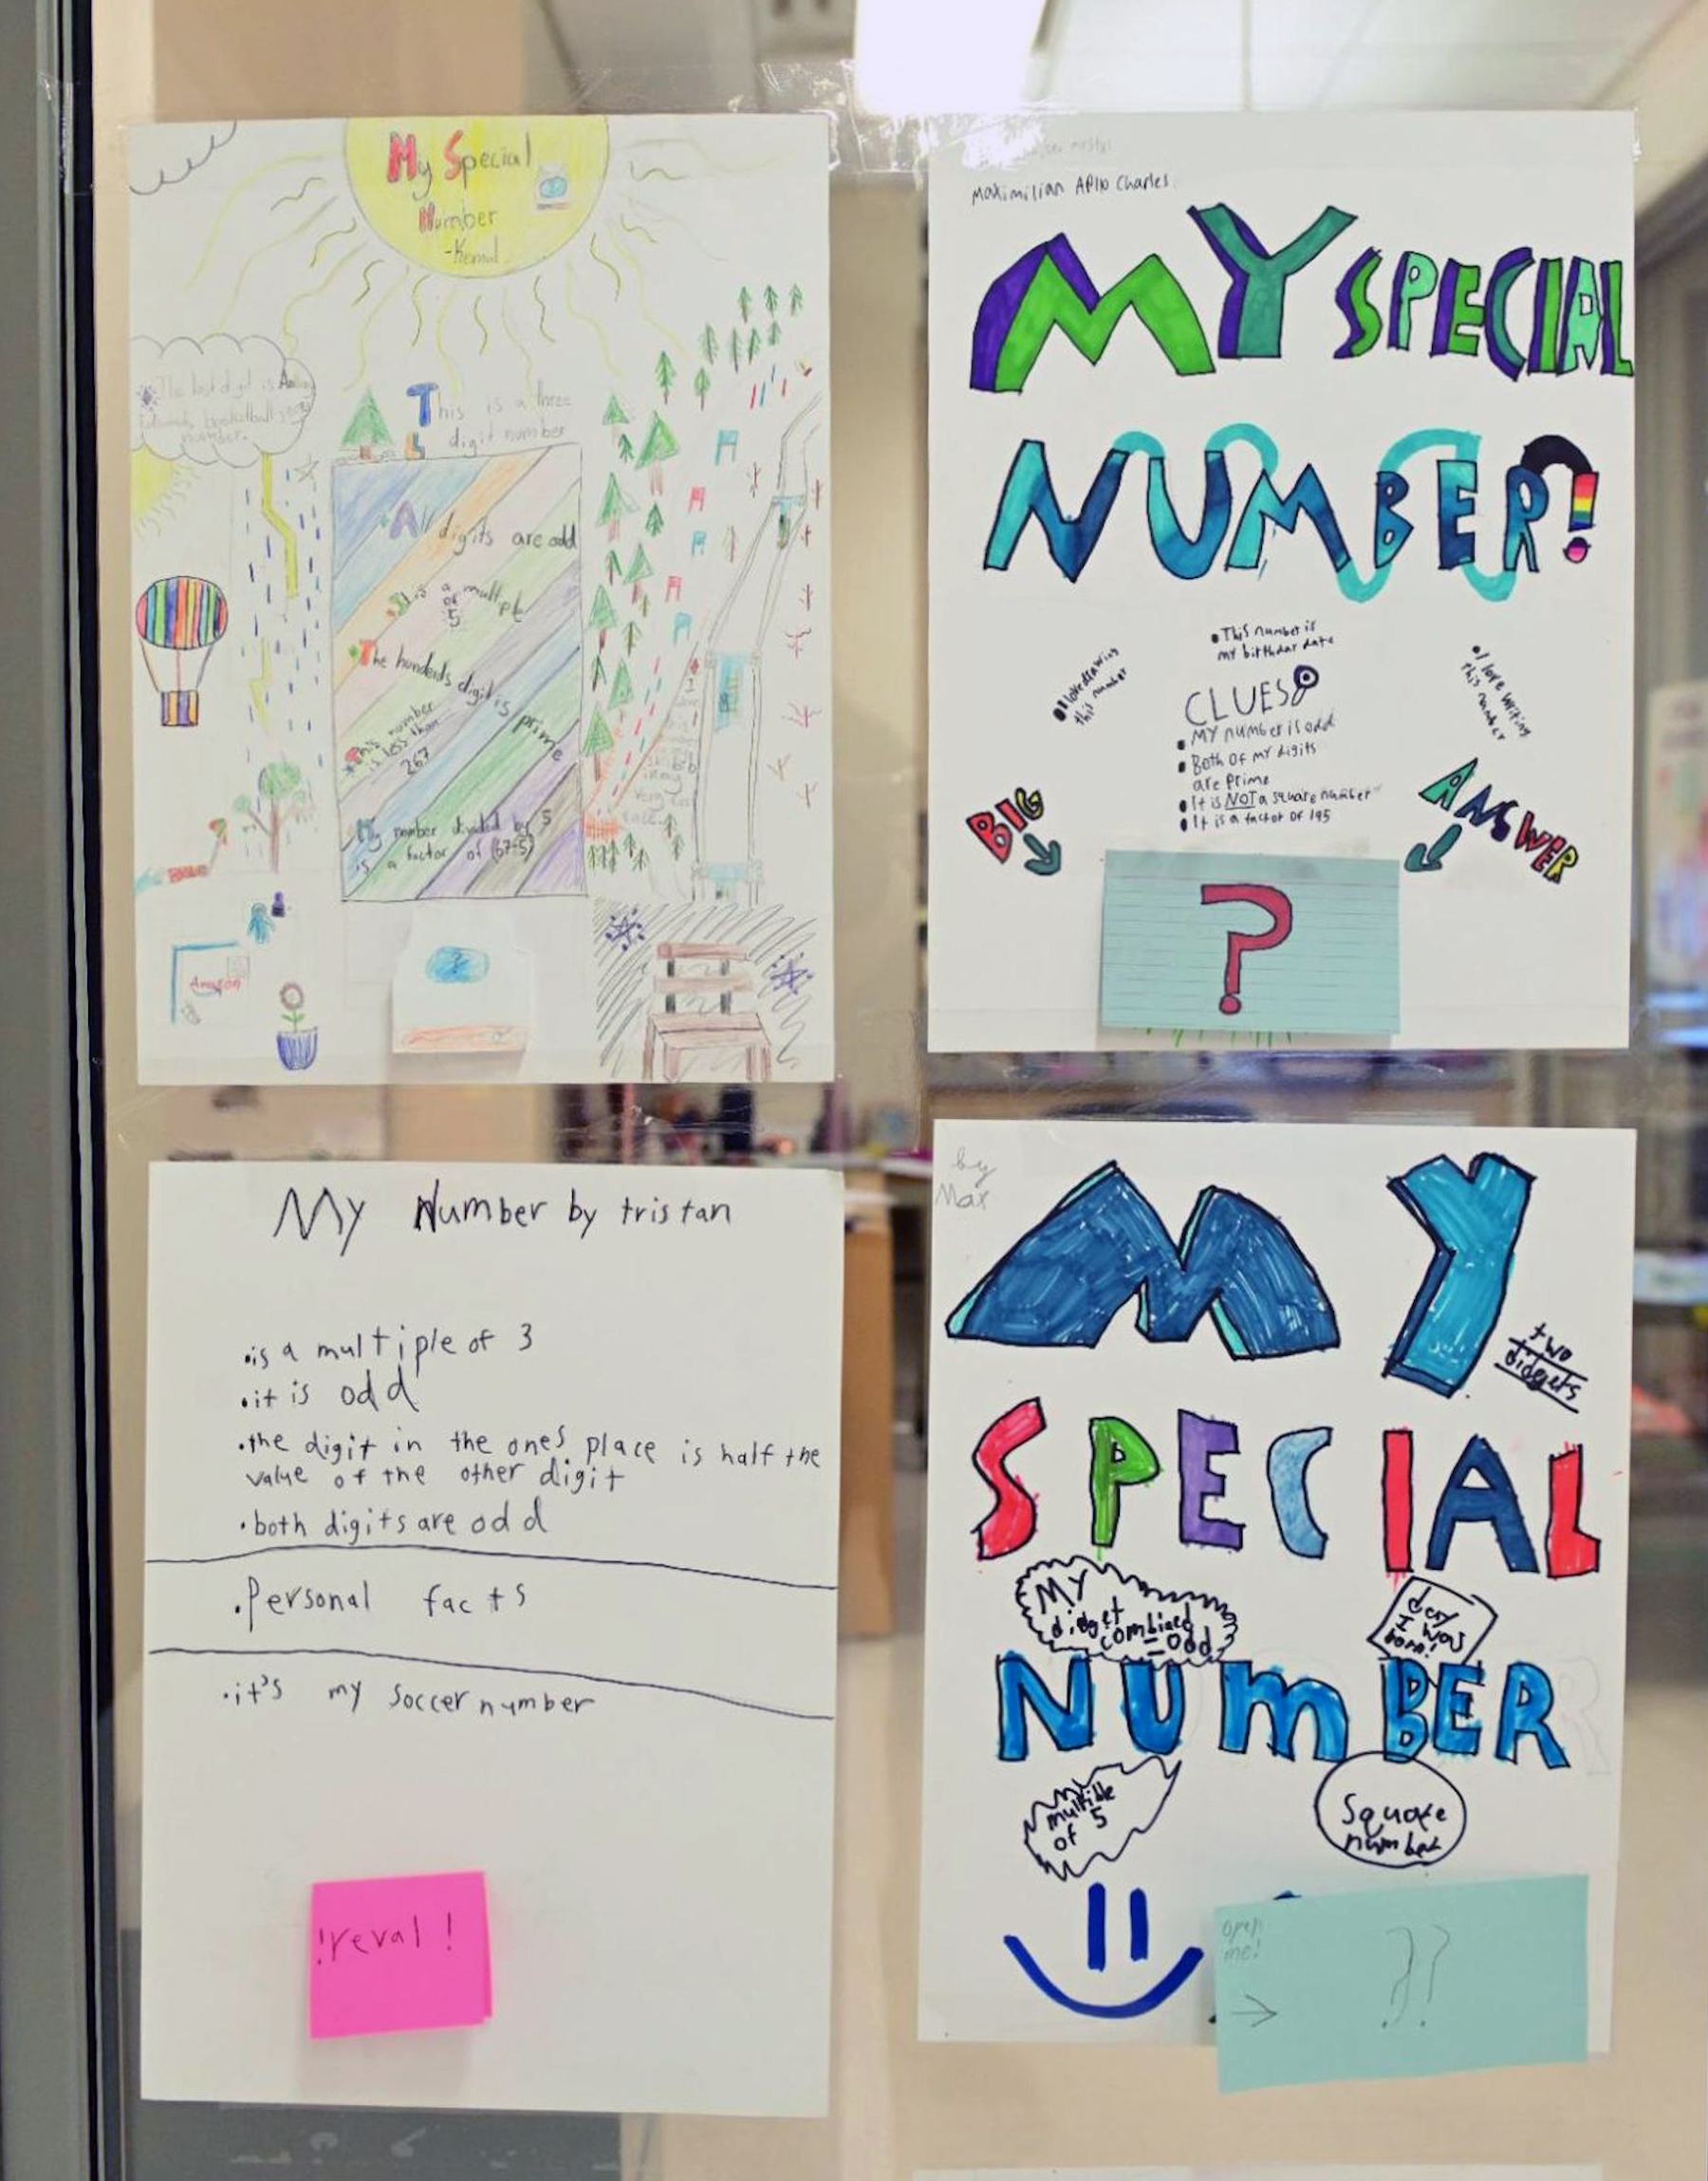 My Special
Number
-Kemal
The last digit is
basketball
number.
This is a three
digit number
All digits are odd
It is a multiple
of
5
The hundreds digit is prime
This number
is less than
267
My number divided by 5
is a factor of (67-5)
Amazon
Maximilian Charles
MY SPECIAL
NUMBER!
This number is
my birthday date
I love drawing
this number
I love writing
this number
CLUES
MY number is odd
Both of my digits
are Prime
It is NOT a square number
It is a factor of 195
BIG
ANSWER
?
My Number by tristan
.is a multiple of 3
.it is odd
.the digit in the ones place is half the
value of the other digit
.both digits are odd
.Personal facts
.it's my soccer number
!reval!
by
Max
MY
two
didgets
SPECIAL
MY
didget
combined
= odd
day
I was
born!
NUmBER
multiple
of 5
Square
number
open
me!
??